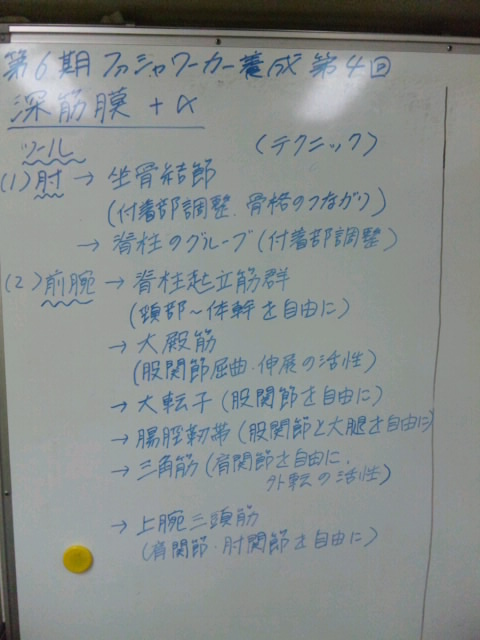 第6期ファシャワーカー養成第4回
深筋膜+α
ツール (テクニック)
(1)肘→坐骨結節
(付着部調整、骨格のつながり)
→脊柱のグルーブ(付着部調整)
(2)前腕→脊柱起立筋群
(頚部~体幹を自由に)
→大殿筋
(股関節屈曲・伸展の活性)
→大転子(股関節を自由に)
→腸脛靭帯(股関節と大腿を自由に)
→三角筋(肩関節を自由に、
外転の活性)
→上腕三頭筋
(肩関節・肘関節を自由に)